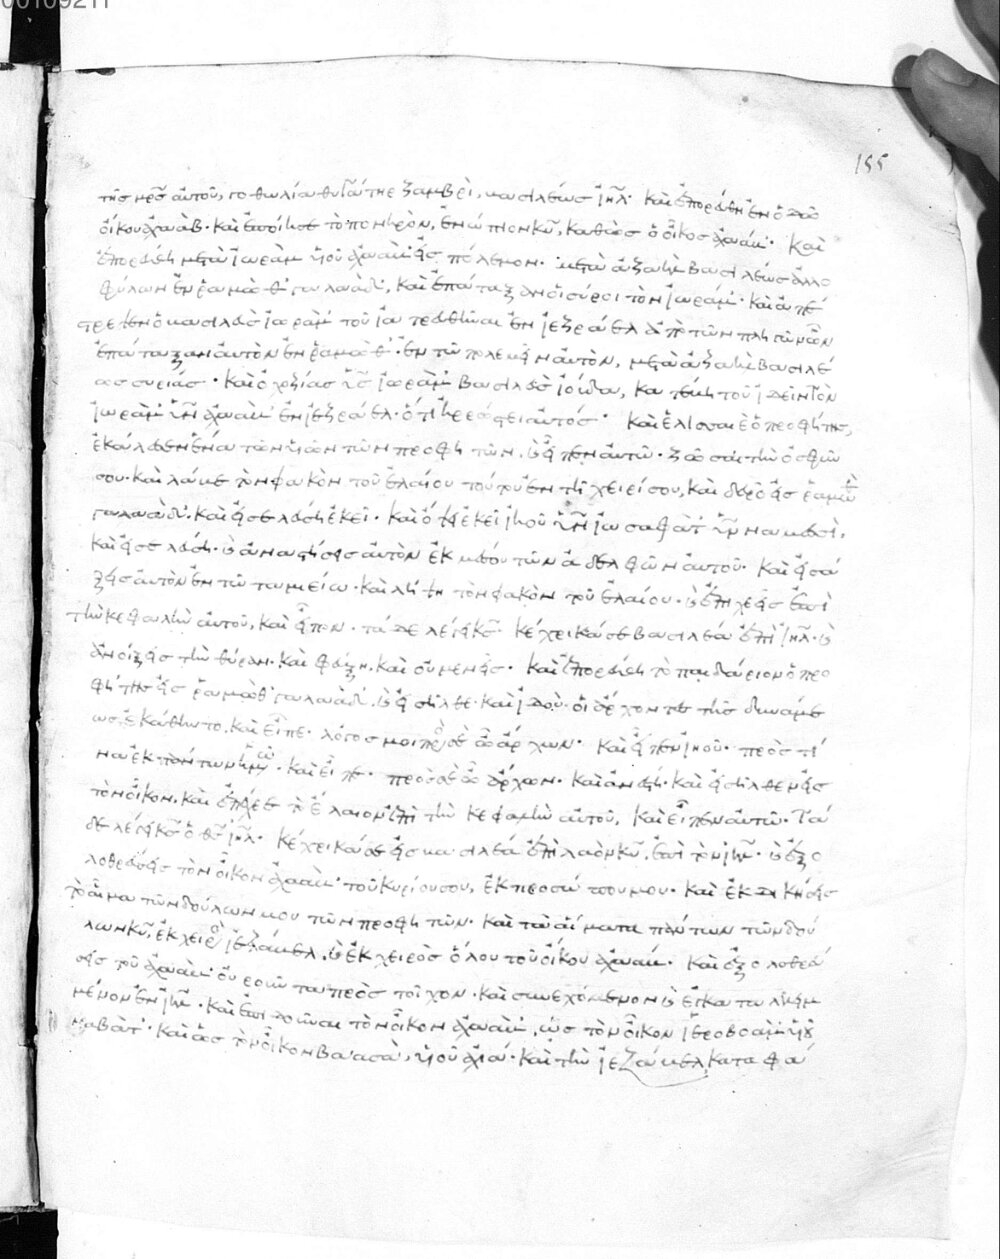 155
τῆς μρς αὐτοῦ, γοθολία θυγάτηρ ζαμβρὶ, βασιλέως ἰηλ. καὶ ἐπορεύθη ἐν ὁδῶ
οἴκου ἀχαάβ. καὶ ἐποίησε τὸ πονηρὸν, ἐνώπιον κυ, καθὼς ὁ οἶκος ἀχαάβ. καὶ
ἐπορεύθη μετὰ ἰωρὰμ υἱοῦ ἀχαὰβ εἰς πόλεμον. μετὰ ἀζαὴλ βασιλέως ἀλλο
φύλων ἐν ῥαμὰθ γαλαὰδ, καὶ ἐπάταξαν οἱ σύροι τὸν ἰωράμ. καὶ ἀπέ
στρεψεν ὁ βασιλεὺς ἰωρὰμ τοῦ ἰατρευθῆναι ἐν ἰεζράελ ἀπὸ τῶν πληγῶν ὧν
ἐπάταξαν αὐτὸν ἐν ῥαμὰθ. ἐν τῶ πολεμεῖν αὐτὸν, μετὰ ἀζαὴλ βασιλέ
ως συρίας. καὶ ὀχοζίας υς ἰωρὰμ βασιλεὺς ἰούδα, κατέβη τοῦ ἰδεῖν τὸν
ἰωρὰμ υν ἀχαὰβ ἐν ἰεζράελ. ὅτι ἠρρώστει αὐτός. καὶ ἐλισσαιὲ ὁ προφήτης,
ἐκάλεσεν ἕνα τῶν υἱῶν τῶν προφητῶν. καὶ εἶπεν αὐτῶ. ζῶσαι τὴν ὀσφύν
σου. καὶ λάβε τὸν φακὸν τοῦ ἐλαίου τούτου ἐν τῆ χειρί σου, καὶ δεῦρο εἰς ῥαμὼθ
γαλαάδ. καὶ εἰσελεύση ἐκεῖ. καὶ ὄψει ἐκεῖ ἰηοῦ υν ἰωσαφὰτ υυ ναμεσὶ.
καὶ εἰσελεύση. καὶ ἀναστήσεις αὐτὸν ἐκ μέσου τῶν ἀδελφῶν αὐτοῦ. καὶ εἰσά
ξεις αὐτὸν ἐν τῶ ταμιείω. καὶ λήψη τὸν φακὸν τοῦ ἐλαίου. καὶ ἐπιχεεῖς ἐπὶ
τὴν κεφαλὴν αὐτοῦ, καὶ εἶπον. τάδε λέγει κς. κέχρικά σε βασιλέα ἐπὶ ἰηλ. καὶ
ἀνοίξεις τὴν θύραν. καὶ φεύξη, καὶ οὐ μενεῖς. καὶ ἐπορεύθη τὸ παιδάριον ὁ προ
φήτης εἰς ῥαμὼθ γαλαάδ. καὶ εἰσῆλθε. καὶ ἰδοὺ οἱ ἄρχοντες τῆς δυνάμε
ως ἐκάθηντο, καὶ εἶπε. λόγος μοι πρὸς σὲ ὦ ἄρχων. καὶ εἶπεν ἰηοῦ. πρὸς τί
να ἐκ πάντων ἡμῶν. καὶ εἶπε. πρὸς σὲ ὦ ἄρχων. καὶ ἀνέστη. καὶ εἰσῆλθεν εἰς
τὸν οἶκον. καὶ ἐπέχεε τὸ ἔλαιον ἐπὶ τὴν κεφαλὴν αὐτοῦ, καὶ εἶπεν αὐτῶ. τά
δε λέγει κς ὁ θς ἰηλ. κέχρικά σε εἰς βασιλέα ἐπὶ λαὸν κυ, ἐπὶ τὸν ἰηλ. καὶ ἐξο
λοθρεύσεις τὸν οἶκον ἀχαὰβ τοῦ κυρίου σου, ἐκ προσώπου μου. καὶ ἐκδικήσεις
τὸ αἷμα τῶν δούλων μου τῶν προφητῶν. καὶ τὰ αἵματα πάντων τῶν δού
λων κυ, ἐκ χειρὸς ἰεζάβελ, καὶ ἐκ χειρὸς ὅλου τοῦ οἴκου ἀχαάβ. καὶ ἐξολοθρεύ
σεις τοῦ ἀχαὰβ οὐροῦντα πρὸς τοῖχον. καὶ συνεχόμενον καὶ ἐγκαταλελειμ
μένον ἐν ἰηλ. καὶ ἐπιδοῦναι τὸν οἶκον ἀχαάβ, ὡς τὸν οἶκον ἱεροβοὰμ υἱοῦ
ναβάτ. καὶ ὡς τὸν οἶκον βαασὰ, υἱοῦ ἀχιά. καὶ τὴν ἰεζάβελ, καταφά